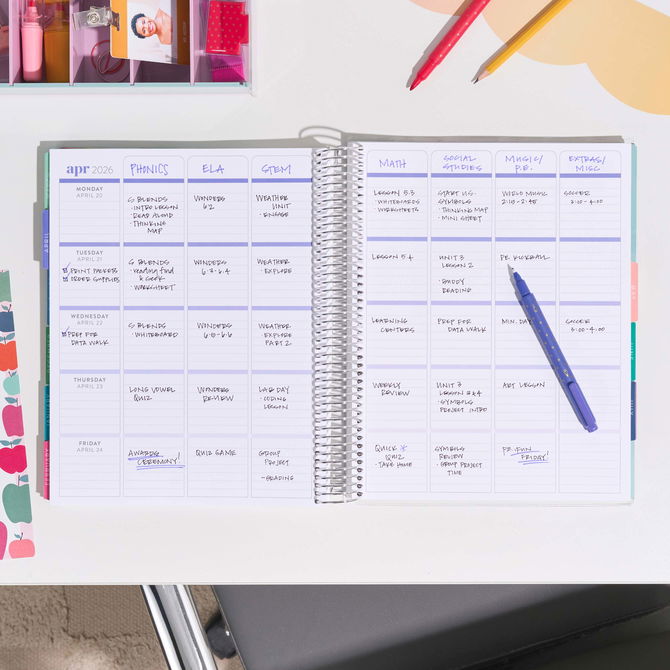 apr 2026
PHONICS
ELA
STEM
MATH
SOCIAL
STUDIES
MUSIC/
P.E.
EXTRAS/
MISC
MONDAY
APRIL 20
S BLENDS
· INTRO LESSON
· READ ALOUD
· THINKING
MAP
WONDERS
6.2
WEATHER
UNIT
· ENGAGE
LESSON 5.3
· WHITEBOARDS
· WORKSHEETS
START U.S.
SYMBOLS
· THINKING MAP
· MINI SHEET
WORLD MUSIC
2:15 - 2:45
SOCCER
3:00 - 4:00
TUESDAY
APRIL 21
PRINT PACKETS
ORDER SUPPLIES
S BLENDS
· reading find
& seek
· WORKSHEET
WONDERS
6.3 - 6.4
WEATHER
· EXPLORE
LESSON 5.4
UNIT 3
LESSON 2
· BUDDY
READING
P.E. KICKBALL
WEDNESDAY
APRIL 22
PREP FOR
DATA WALK
S BLENDS
· WHITEBOARD
WONDERS
6.5 - 6.6
WEATHER
· EXPLORE
PART 2
LEARNING
CENTERS
PREP FOR
DATA WALK
MIN. DAY
SOCCER
3:00 - 4:00
THURSDAY
APRIL 23
LONG VOWEL
QUIZ
WONDERS
REVIEW
LAB DAY
· CODING
LESSON
WEEKLY
REVIEW
UNIT 3
LESSON 3 & 4
· SYMBOLS
PROJECT INTRO
ART LESSON
FRIDAY
APRIL 24
AWARDS
CEREMONY!
QUIZ GAME
GROUP
PROJECT
QUICK
QUIZ
· TAKE HOME
SYMBOLS
REVIEW
· GROUP PROJECT
TIME
P.E. FUN
FRIDAY!
APRIL